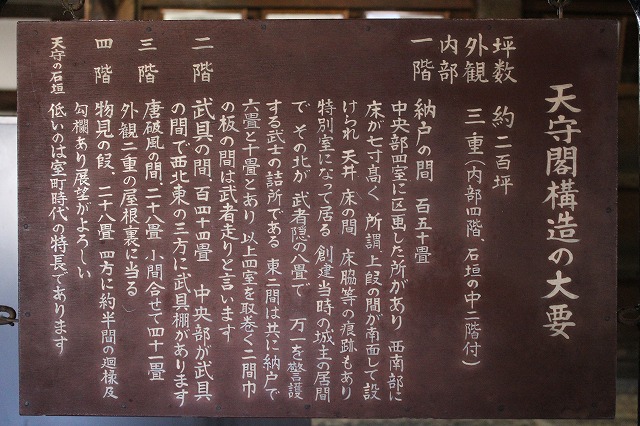 天守閣構造の大要
坪数 約二百坪
外観 三重(内部四階、石垣の中二階付)
内部
一階 納戸の間 百五十畳
中央部四室に区画した所があり 西南部に
床が七寸高く 所謂上段の間が南面して設
けられ 天井 床の間 床脇等の痕跡もあり
特別室になって居る 創建当時の城主の居間
で その北が 武者隠の八畳で 万一を警護
する武士の詰所である 東二間は共に納戸で
六畳と十畳とあり 以上四室を取巻く二間巾
の板の間は武者走りと言います
二階 武具の間、百四十四畳 中央部が武具
の間で西北東の三方に武具棚があります
三階 唐破風の間、二十八畳 小間合せて四十一畳
外観二重の屋根裏に当る
四階 物見の段、二十八畳 四方に約半間の廻椽及
勾欄あり展望がよろしい
天守の石垣 低いのは室町時代の特長であります